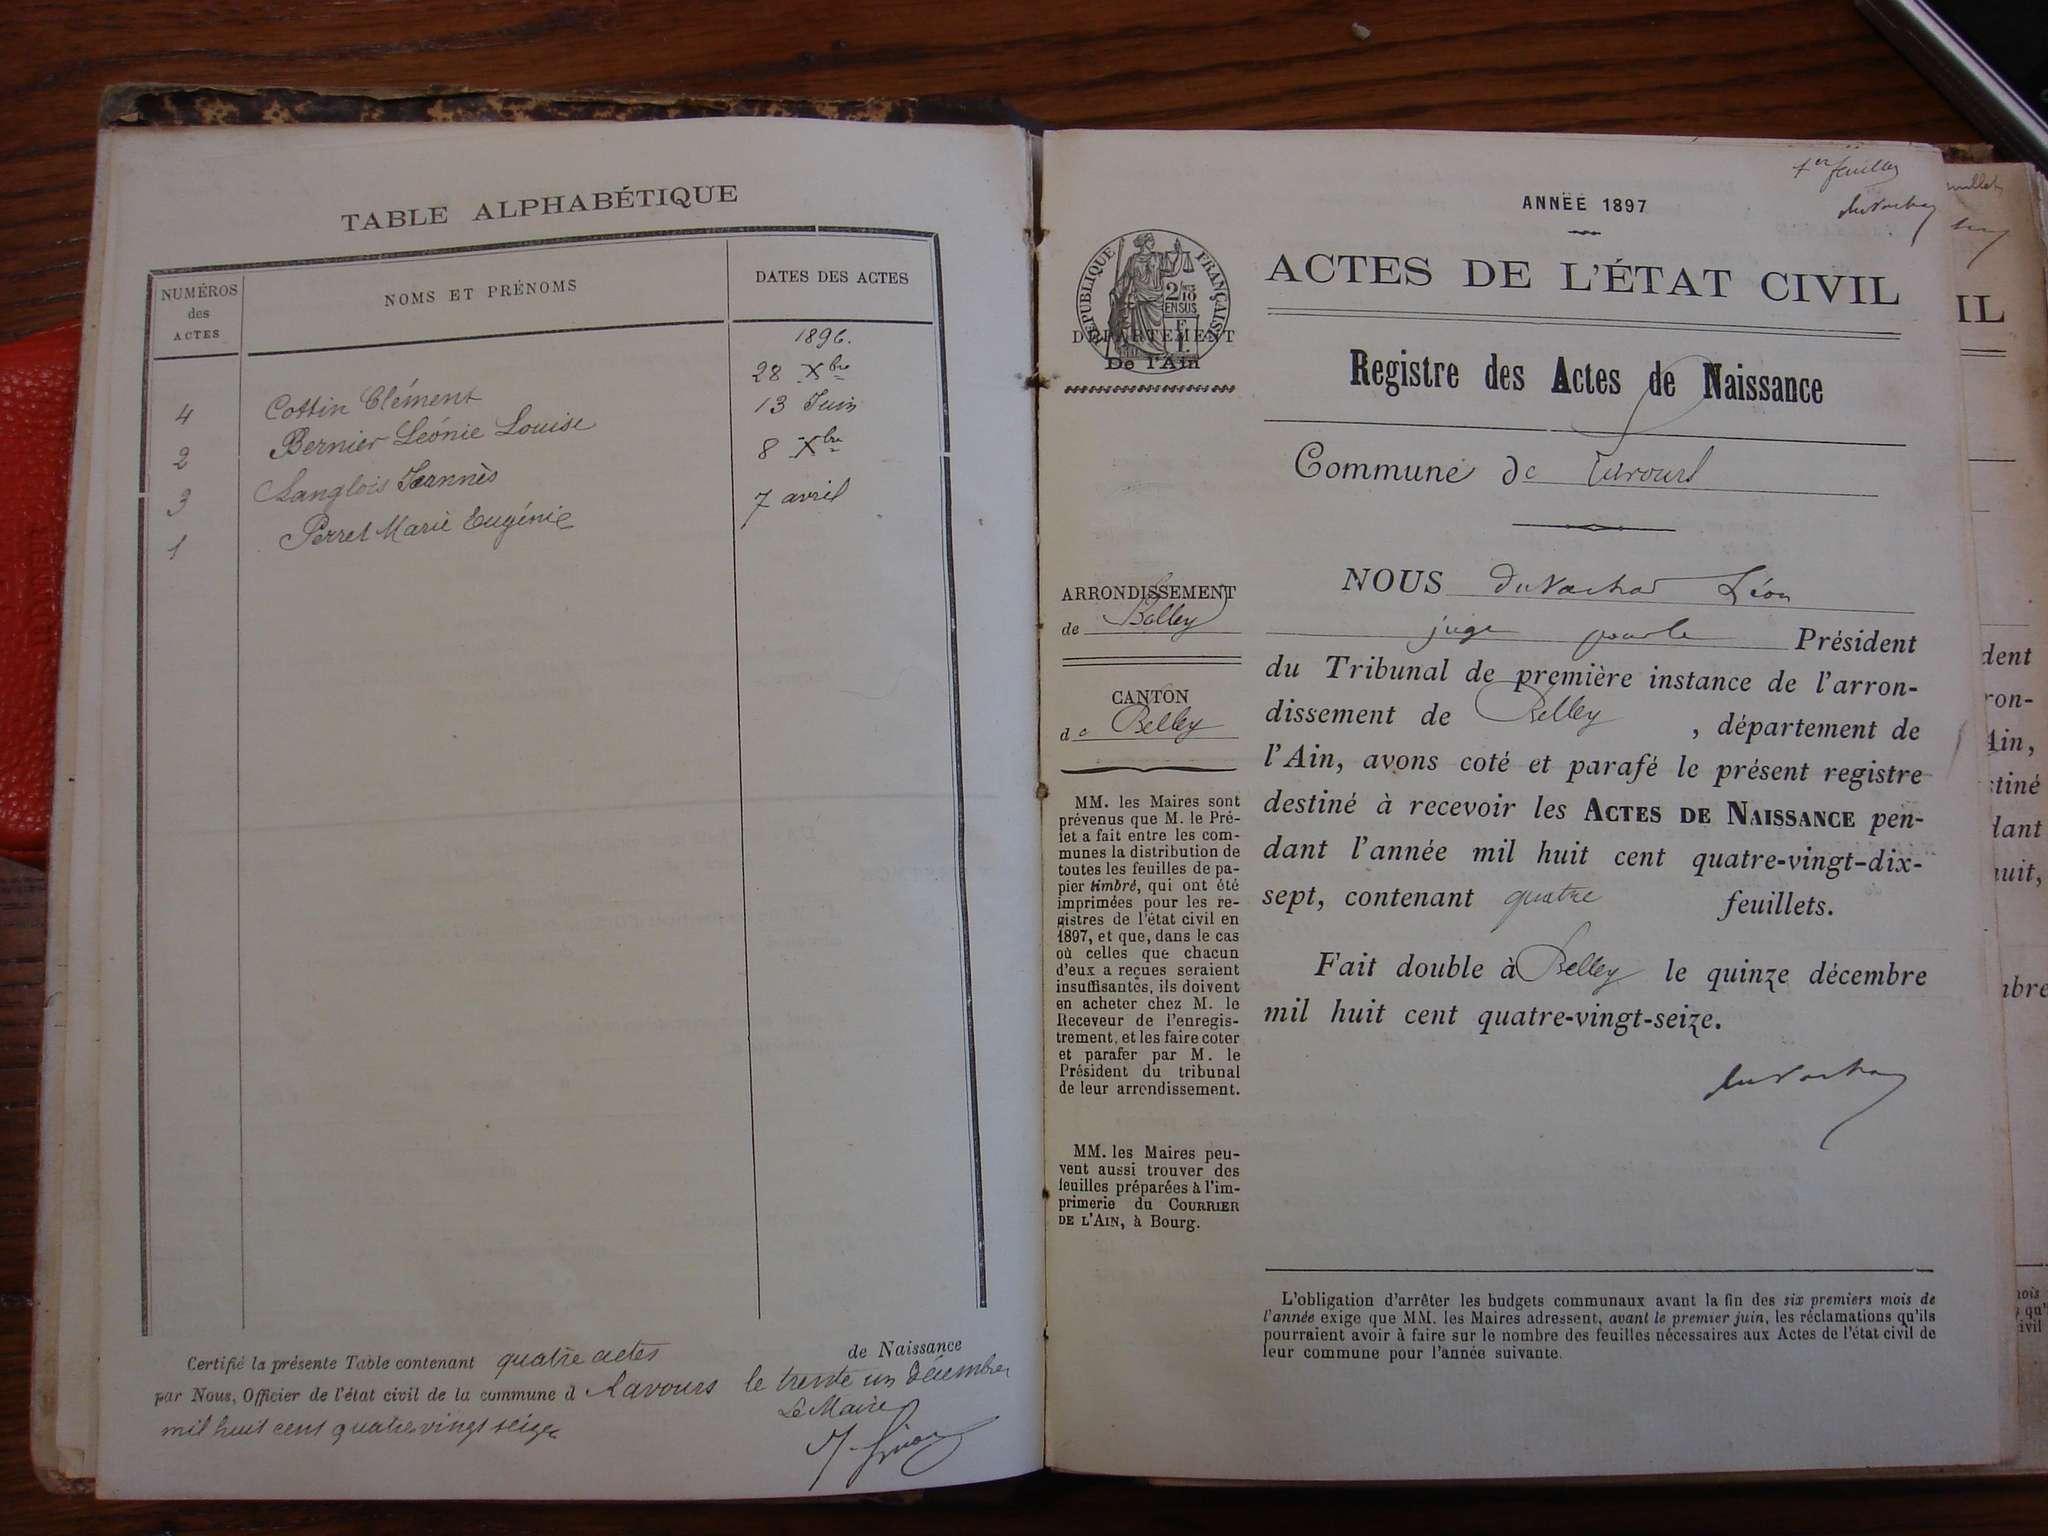 TABLE ALPHABÉTIQUE
NUMÉROS des ACTES
NOMS ET PRÉNOMS
DATES DES ACTES
1896.
4 Cottin Clément 28 Xbre
2 Bernier Léonie Louise 13 Juin
3 Langlois Joannès 8 Xbre
1 Perret Marie Eugénie 7 avril
Certifié la présente Table contenant quatre actes de Naissance
par Nous, Officier de l'état civil de la commune d Lavours le trente un Décembre
mil huit cent quatre vingt seize
Le Maire
1er feuillet
ANNÉE 1897
ACTES DE L'ÉTAT CIVIL
RÉPUBLIQUE FRANÇAISE
2/10 EN SUS
DÉPARTEMENT
De l'Ain
Registre des Actes de Naissance
Commune de Lavours
ARRONDISSEMENT
de Belley
CANTON
de Belley
MM. les Maires sont
prévenus que M. le Pré-
fet a fait entre les com-
munes la distribution de
toutes les feuilles de pa-
pier timbré, qui ont été
imprimées pour les re-
gistres de l'état civil en
1897, et que, dans le cas
où celles que chacun
d'eux a reçues seraient
insuffisantes, ils doivent
en acheter chez M. le
Receveur de l'enregis-
trement, et les faire coter
et parafer par M. le
Président du tribunal
de leur arrondissement.
MM. les Maires peu-
vent aussi trouver des
feuilles préparées à l'im-
primerie du COURRIER
DE L'AIN, à Bourg.
NOUS Léon
juge pour le Président
du Tribunal de première instance de l'arron-
dissement de Belley, département de
l'Ain, avons coté et parafé le présent registre
destiné à recevoir les ACTES DE NAISSANCE pen-
dant l'année mil huit cent quatre-vingt-dix-
sept, contenant quatre feuillets.
Fait double à Belley le quinze décembre
mil huit cent quatre-vingt-seize.
L'obligation d'arrêter les budgets communaux avant la fin des six premiers mois de
l'année exige que MM. les Maires adressent, avant le premier juin, les réclamations qu'ils
pourraient avoir à faire sur le nombre des feuilles nécessaires aux Actes de l'état civil de
leur commune pour l'année suivante.
IL
dent
ron-
Ain,
stiné
dant
huit,
mbre